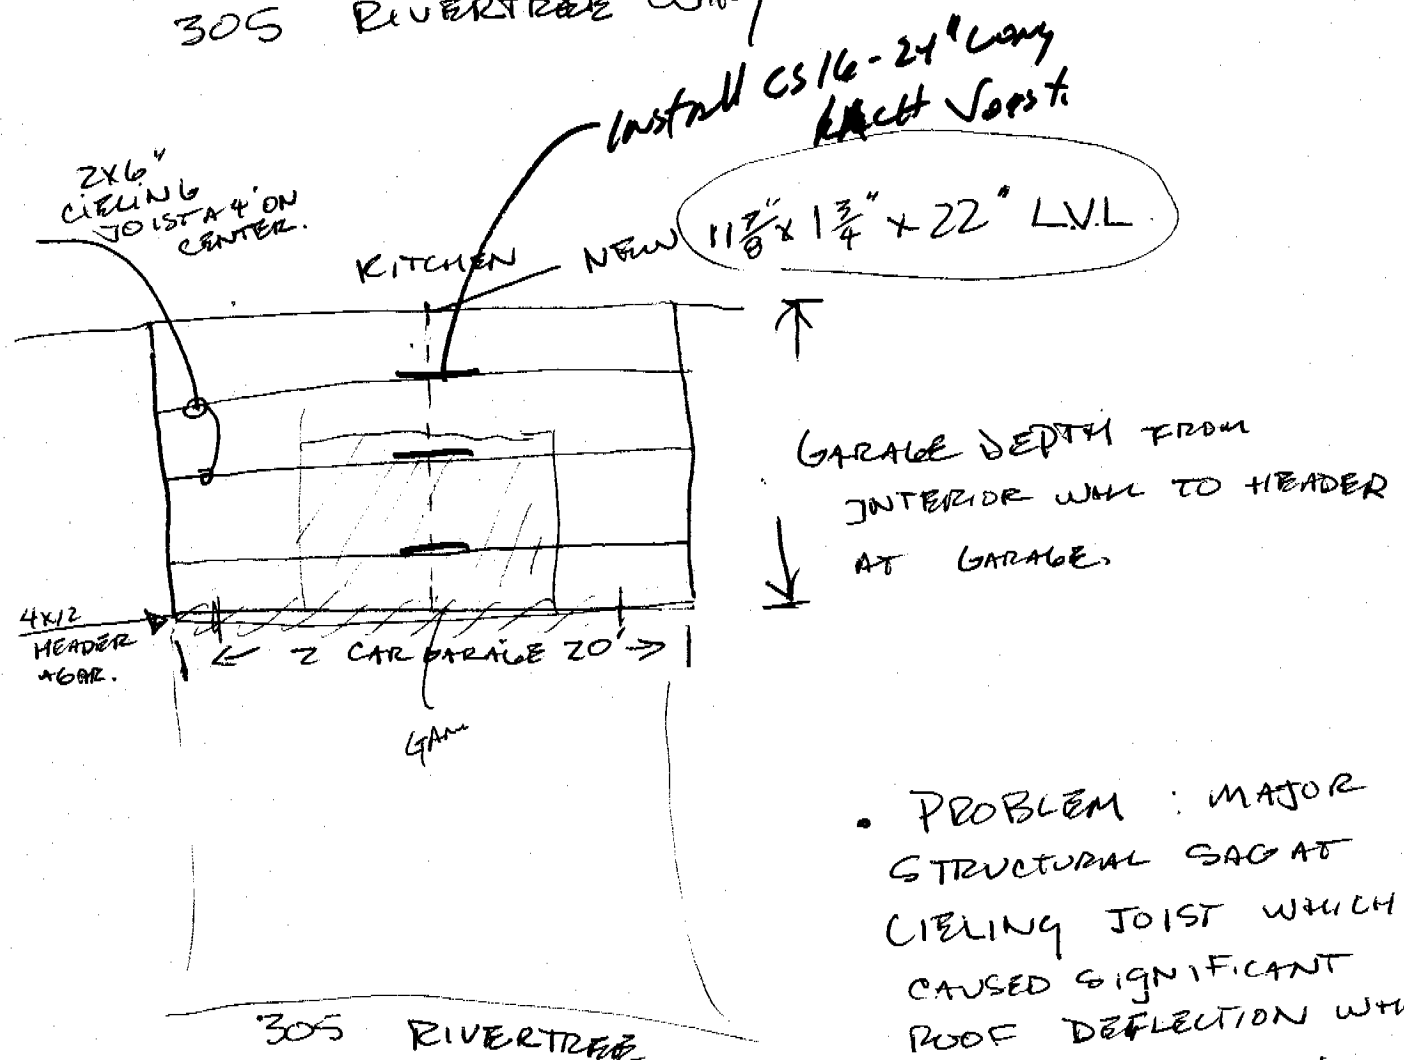 305 RIVERTREE WAY
Install CS16-24" Long
EACH Joist.
2X6"
CIELING
JOIST A 4' ON
CENTER.
KITCHEN
NEW 11 7/8" x 1 3/4" x 22" L.V.L.
GARAGE DEPTH FROM
INTERIOR WALL TO HEADER
AT GARAGE.
4X12
HEADER
@GAR.
2 CAR GARAGE 20'
• PROBLEM : MAJOR
STRUCTURAL SAG AT
CIELING JOIST WHICH
CAUSED SIGNIFICANT
ROOF DEFLECTION
305 RIVERTREE